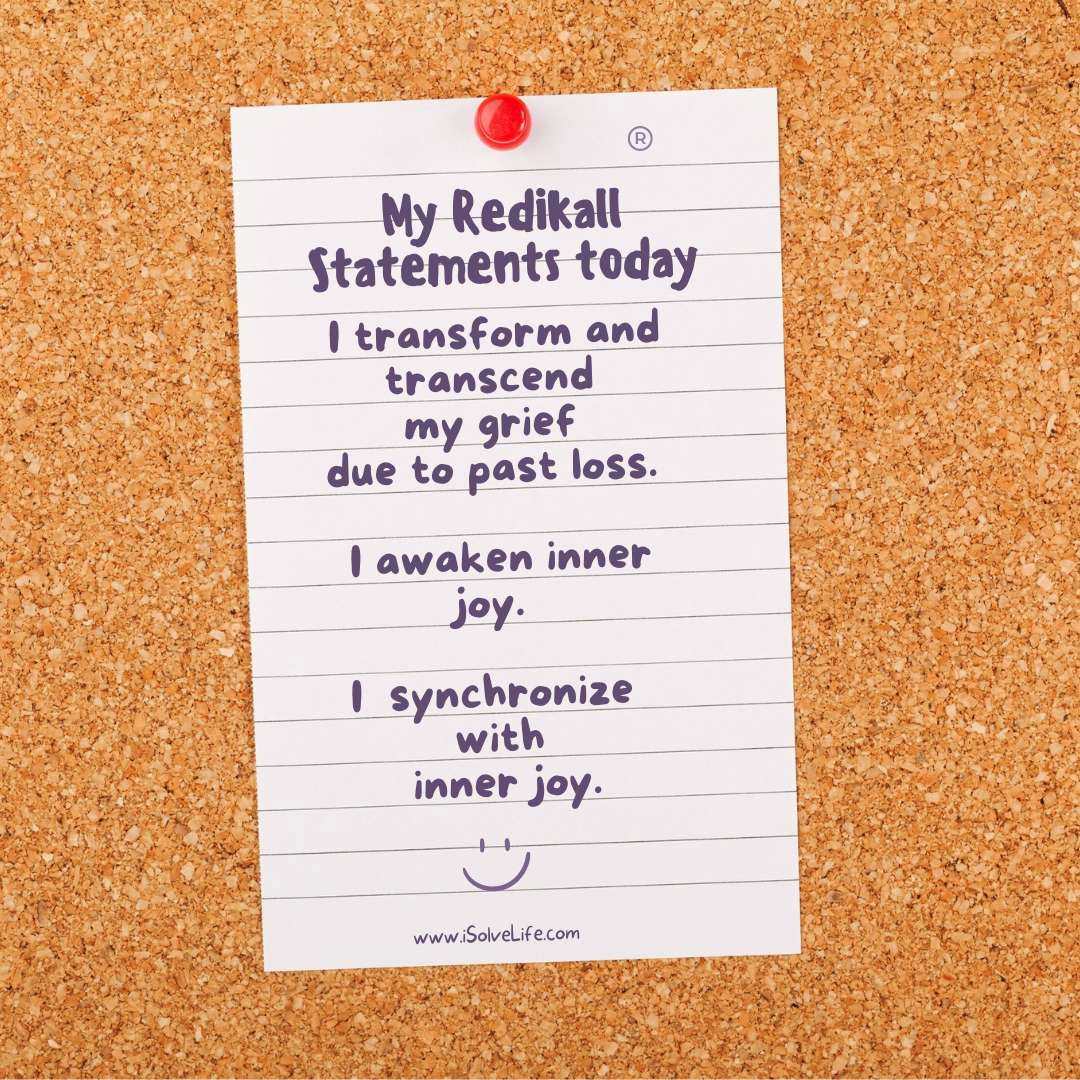 ®
My Redikall
Statements today
I transform and
transcend
my grief
due to past loss.
I awaken inner
joy.
I synchronize
with
inner joy.
www.iSolveLife.com